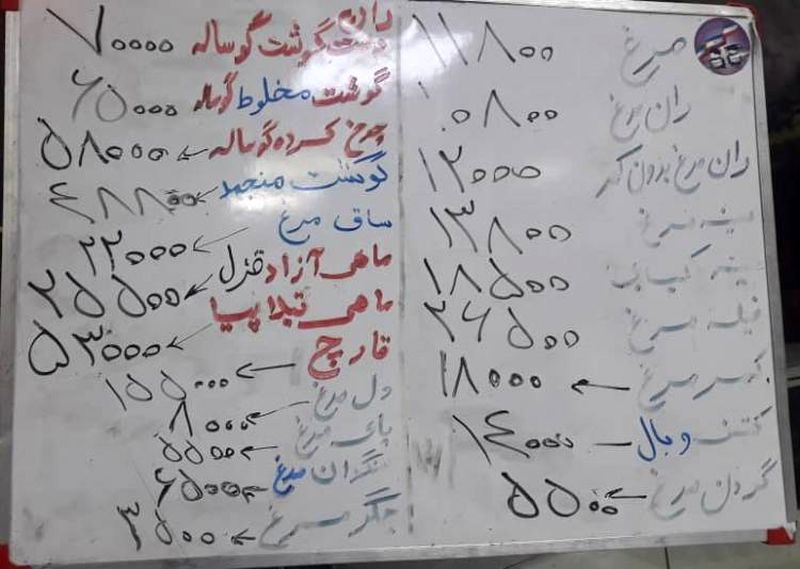 مرغ ۱۱۸۰۰
ران مرغ ۱۰۸۰۰
ران مرغ بدون کمر ۱۲۰۰۰
سینه مرغ ۱۳۸۰۰
سینه کبابی ۱۸۵۰۰
فیله مرغ ۲۶۵۰۰
کمر مرغ ← ۱۸۰۰۰
کتف و بال — ۱۴۰۰۰
گردن مرغ ← ۵۵۰۰
ران
دست گوشت گوساله ۷۰۰۰۰
گوشت مخلوط گوساله ۶۵۰۰۰
چرخ کرده گوساله ← ۵۸۰۰۰
گوشت منجمد ← ۴۸۸۰۰
ساق مرغ ← ۲۲۰۰۰
ماهی آزاد قزل ← ۲۵۵۰۰
ماهی تیلاپیا ← ۵۳۰۰۰
قارچ ← ۱۵۵۰۰۰
دل مرغ ← ۸۰۰۰
پای مرغ ← ۵۵۰۰
سنگدان مرغ ← ۶۵۰۰۰
جگر مرغ ← ۳۵۰۰